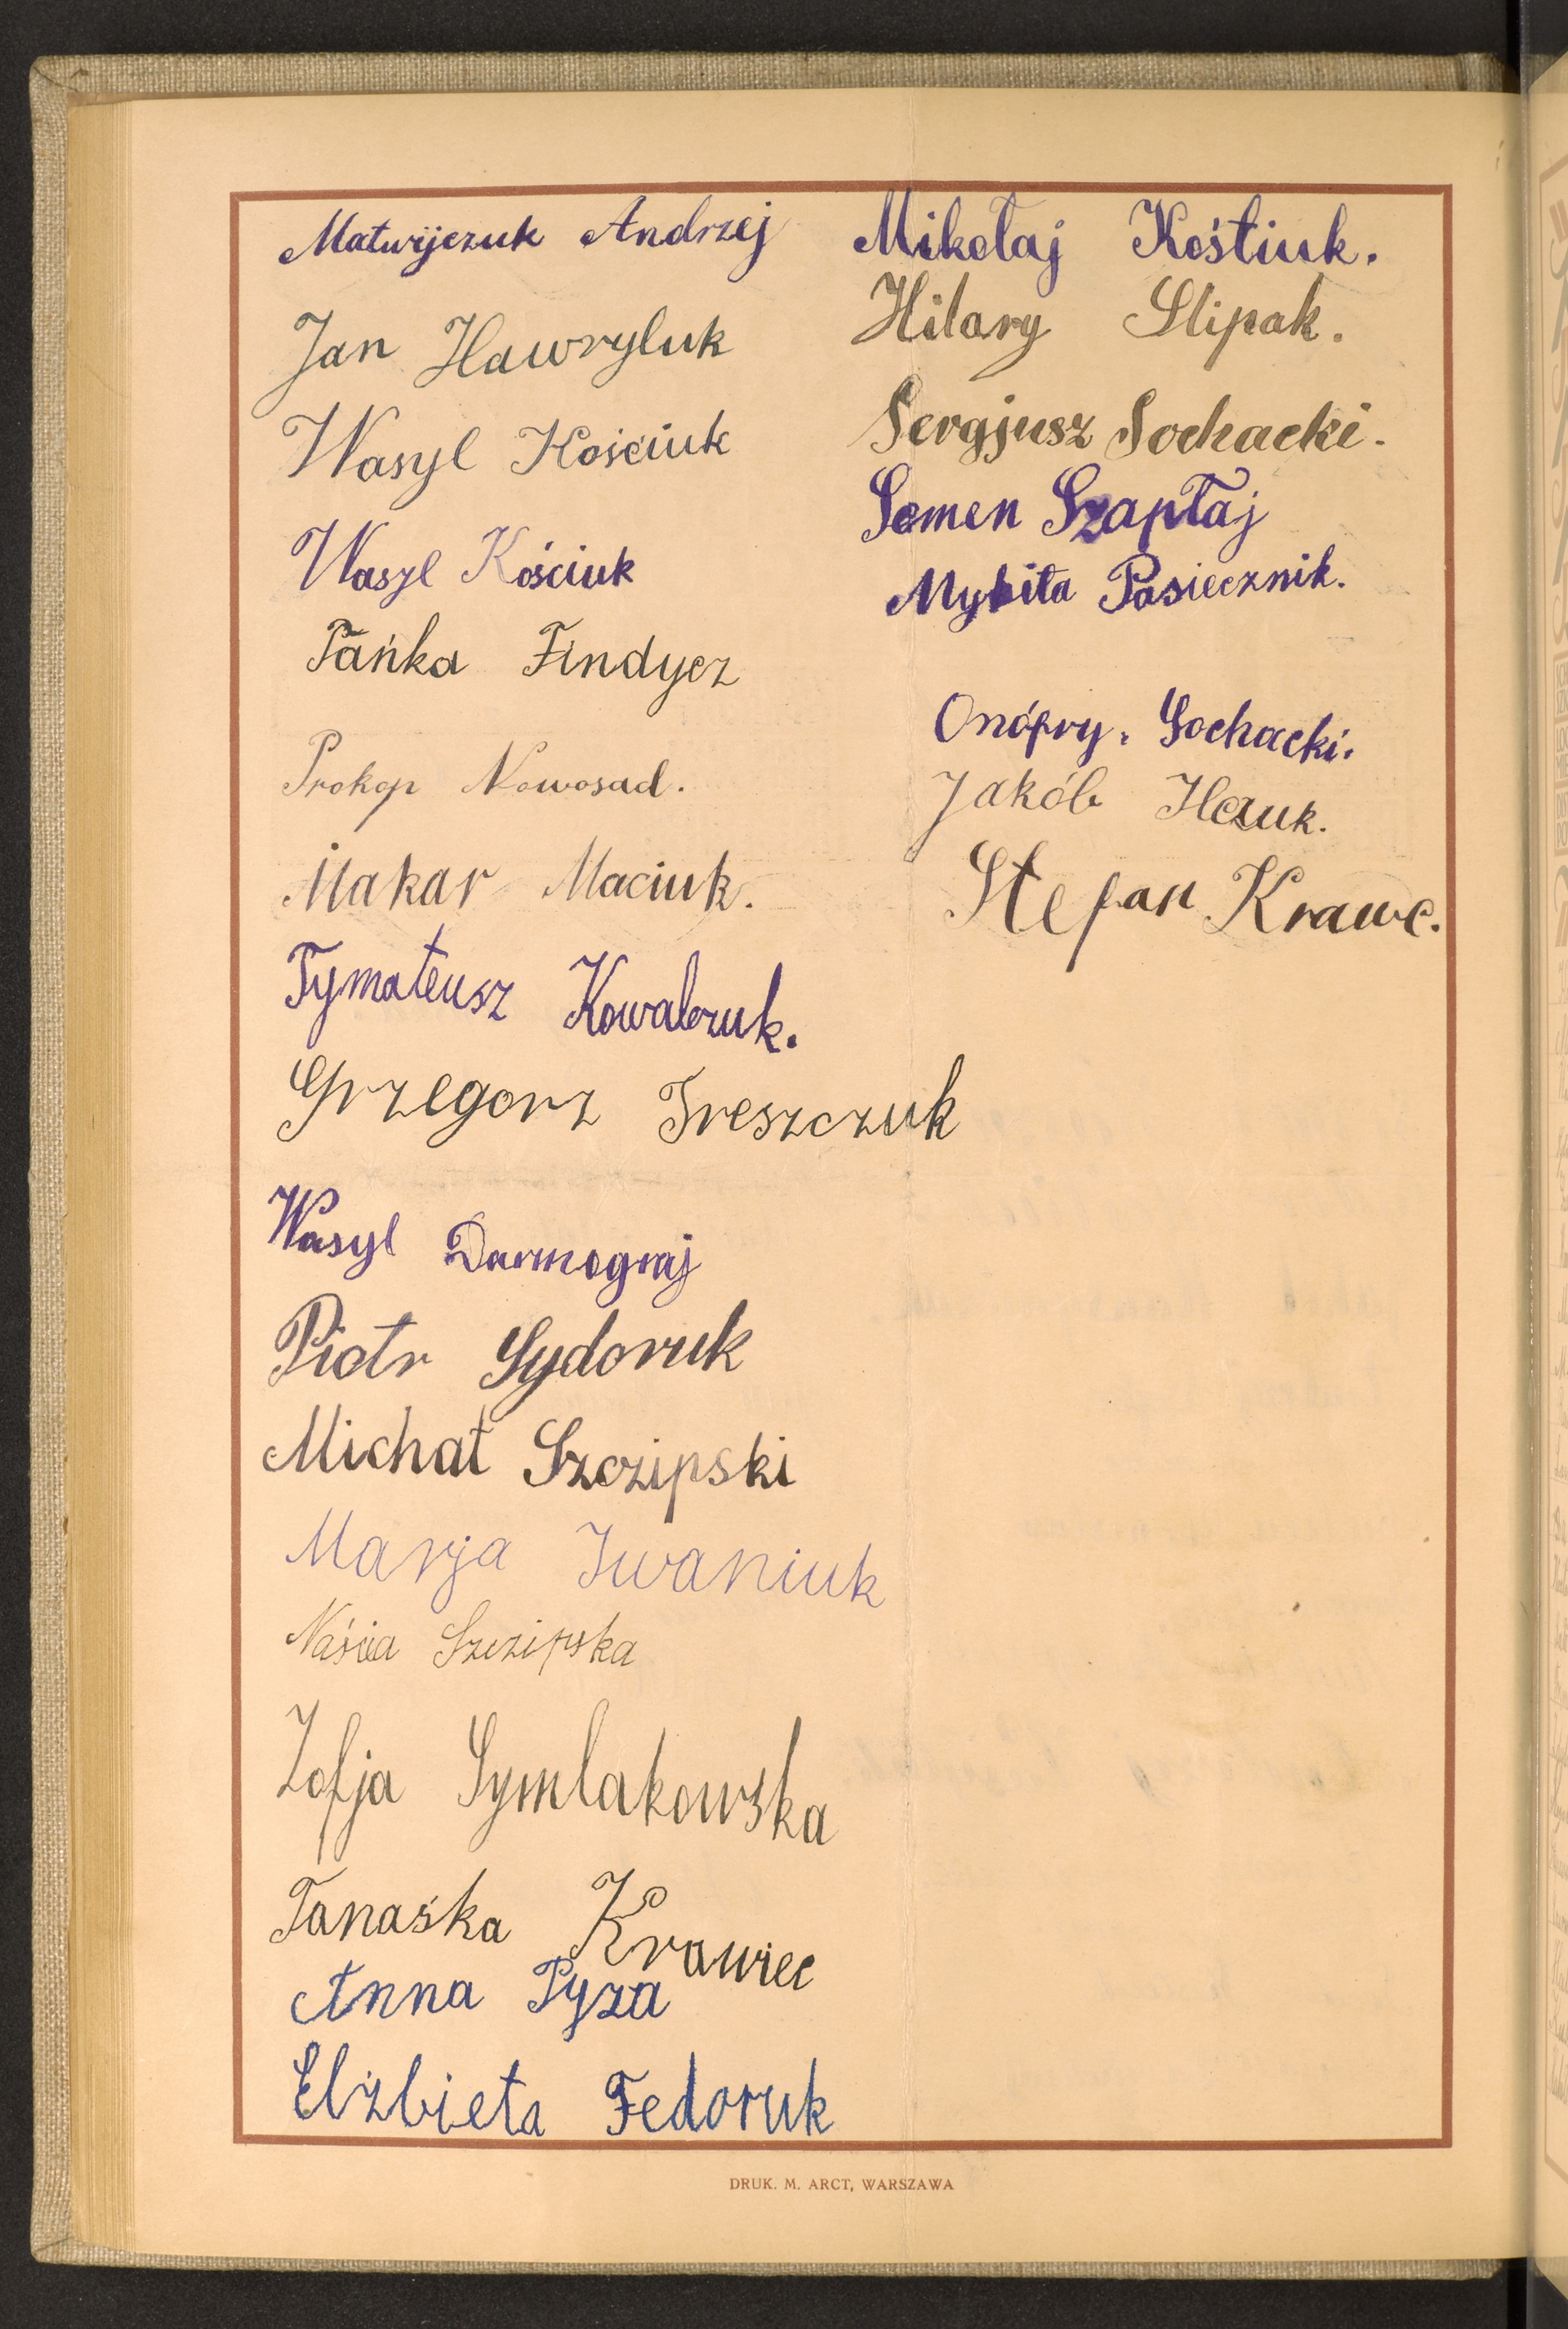 Matwijczuk Andrzej
Jan Hawryluk
Wasyl Kościuk
Wasyl Kościuk
Pańka Findycz
Prokop Nowosad.
Makar Maciuk.
Tymateusz Kowalczuk.
Grzegorz Treszczuk
Wasyl Darmograj
Piotr Sydoruk
Michał Szczipski
Marja Iwaniuk
Naścia Szczipska
Zofja Symlakowska
Tanaśka Krawiec
Anna Pyza
Elżbieta Fedoruk
Mikołaj Kośtiuk.
Hilary Slipak.
Sergjusz Sochacki.
Semen Szapłaj
Mykita Pasiecznik.
Onófry. Sochacki.
Jakób Ilczuk.
Stefan Krawc.
DRUK. M. ARCT, WARSZAWA